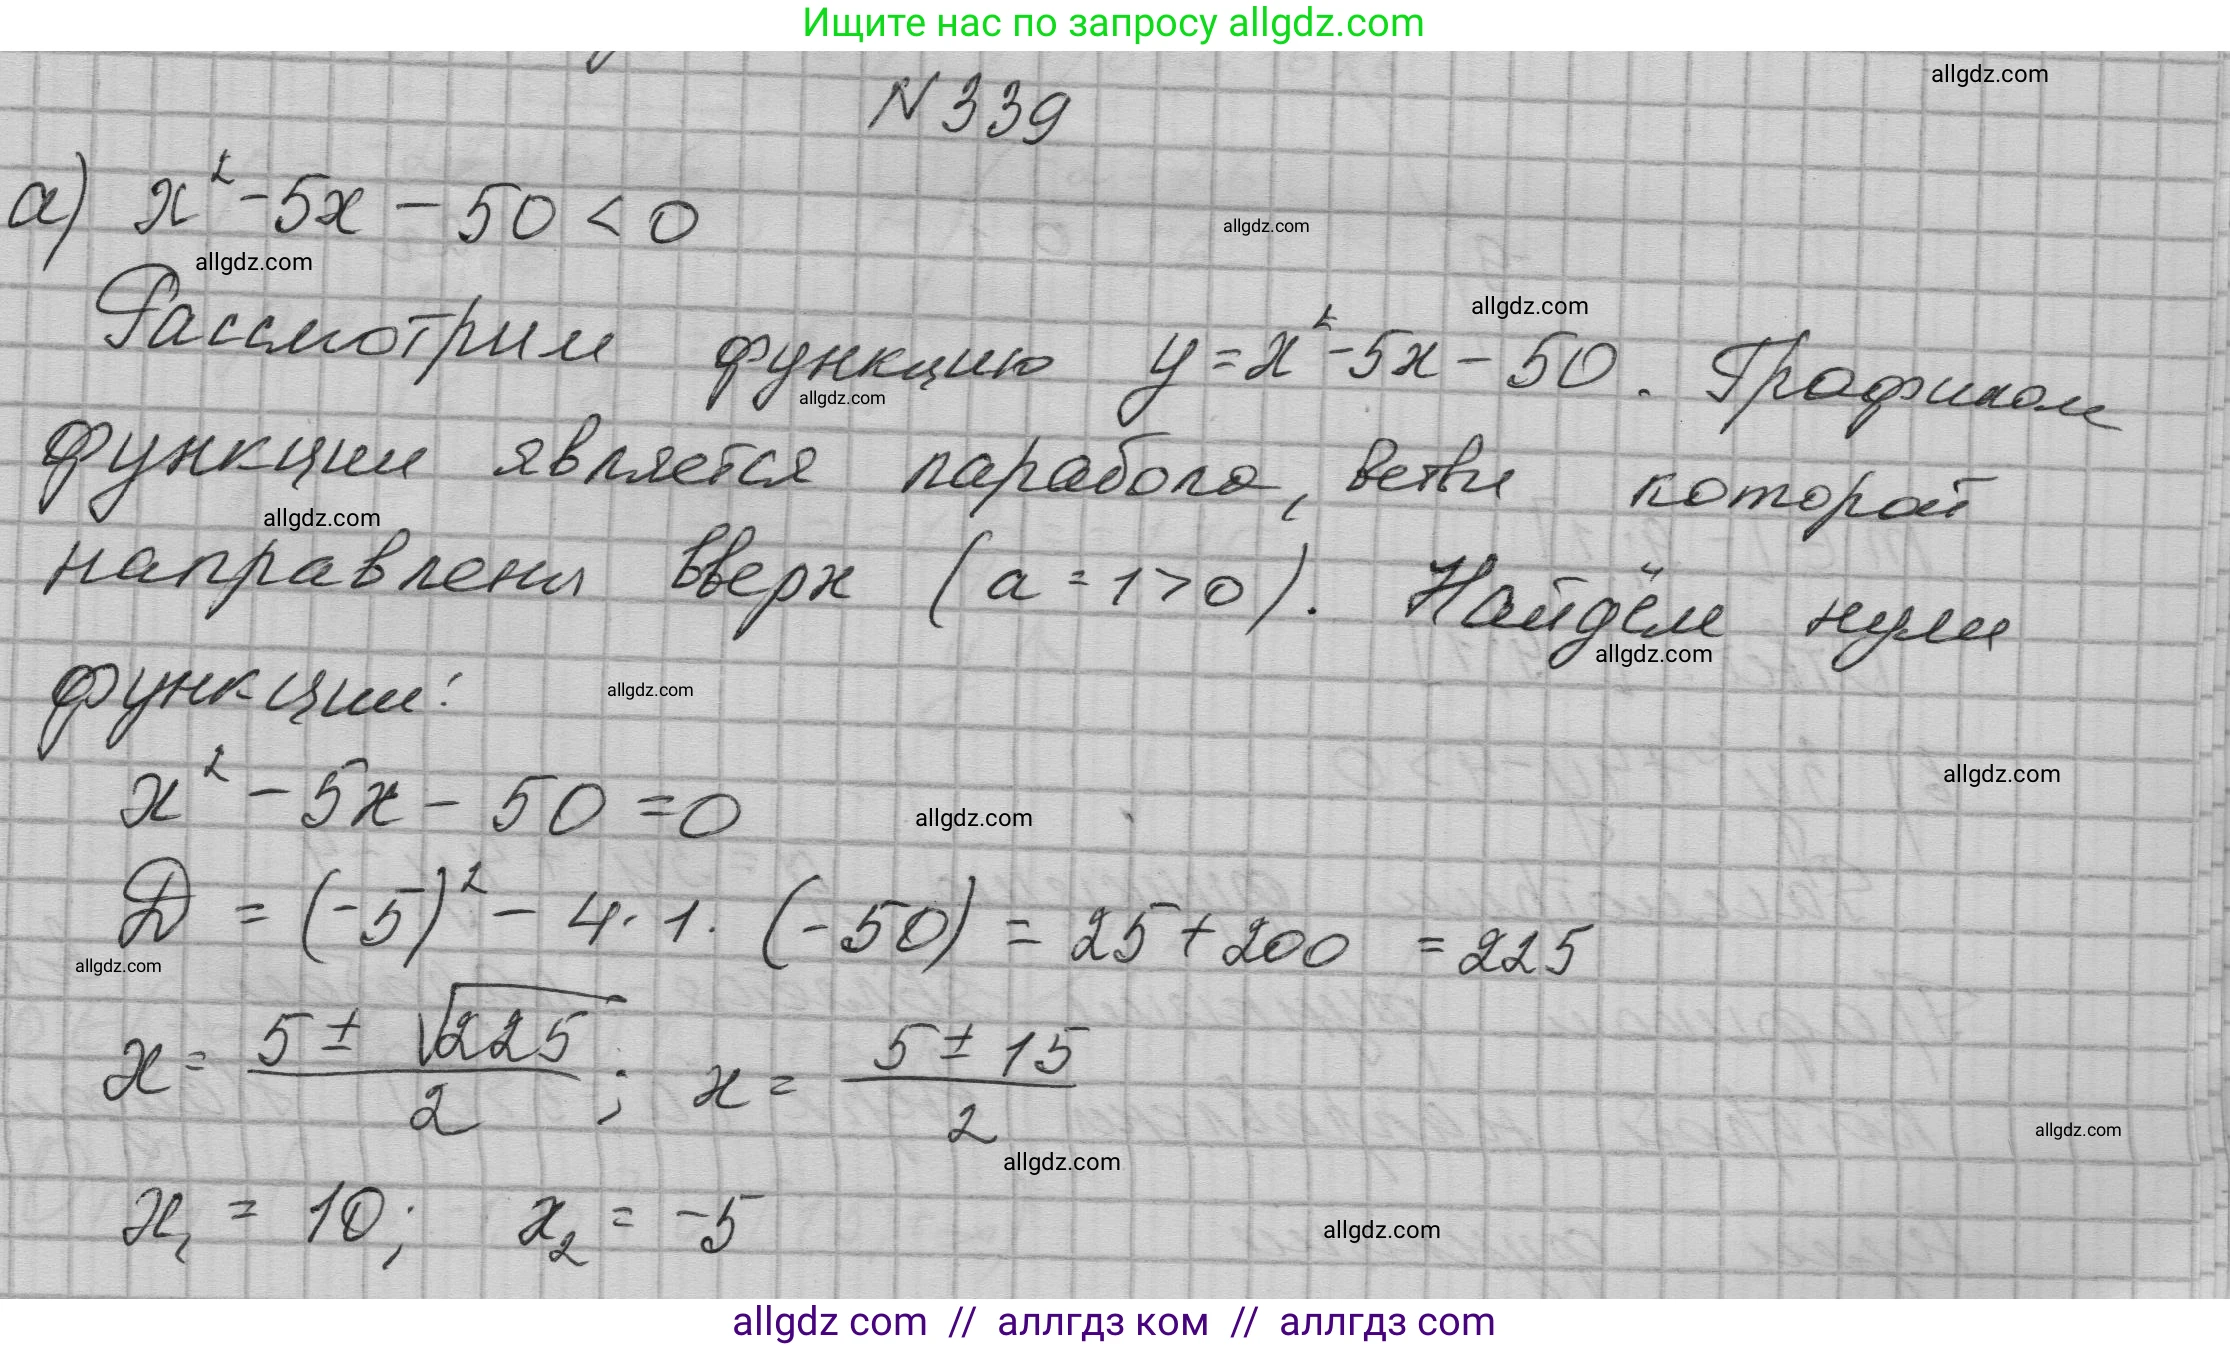 Ищите нас по запросу allgdz.com
allgdz.com
N 339
а) x² - 5x - 50 < 0
allgdz.com
allgdz.com
allgdz.com
Рассмотрим функцию y = x² - 5x - 50. Графиком
allgdz.com
функции является парабола, ветви которой
allgdz.com
направлены вверх (a = 1 > 0). Найдём нули
allgdz.com
функции:
allgdz.com
x² - 5x - 50 = 0
allgdz.com
allgdz.com
D = (-5)² - 4 · 1 · (-50) = 25 + 200 = 225
allgdz.com
x = (5 ± √225)/2 ; x = (5 ± 15)/2
allgdz.com
allgdz.com
x₁ = 10; x₂ = -5
allgdz.com
allgdz com // аллгдз ком // аллгдз com